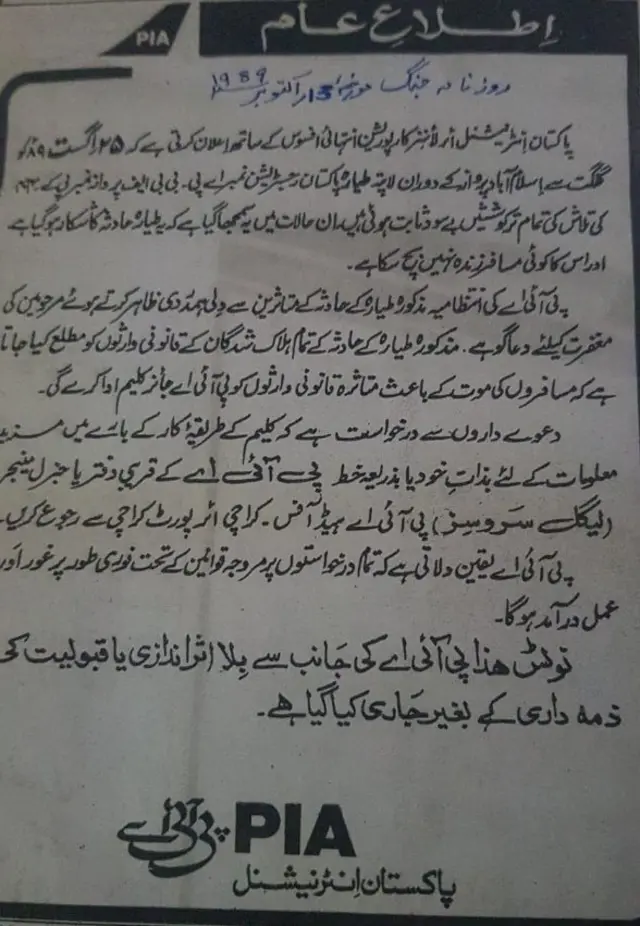 PIA
اِطلاعِ عام
روزنامہ جنگ مورخہ 13 اکتوبر 1989
پاکستان انٹرنیشنل ائرلائنز کارپوریشن انتہائی افسوس کے ساتھ اعلان کرتی ہے کہ ۲۵ اگست ۸۹ء کو
گلگت سے اسلام آباد پرواز کے دوران لاپتہ طیارہ پاکستان رجسٹریشن نمبر اے پی۔ بی بی ایف پرواز نمبر پی کے
کی تلاش کی تمام تر کوششیں بے سود ثابت ہوئی ہیں، ان حالات میں یہ سمجھا گیا ہے کہ یہ طیارہ حادثہ کا شکار ہو گیا ہے
اور اس کا کوئی مسافر زندہ نہیں بچ سکا ہے۔
پی آئی اے کی انتظامیہ مذکورہ طیارہ کے حادثہ کے متاثرین سے دلی ہمدردی ظاہر کرتے ہوئے مرحومین کی
مغفرت کیلئے دعاگو ہے۔ مذکورہ طیارہ کے حادثہ کے تمام ہلاک شدگان کے قانونی وارثوں کو مطلع کیا جاتا
ہے کہ مسافروں کی موت کے باعث متاثرہ قانونی وارثوں کو پی آئی اے جائز کلیم ادا کرے گی۔
دعوے داروں سے درخواست ہے کہ کلیم کے طریقۂ کار کے بارے میں مزید
معلومات کے لئے بذاتِ خود یا بذریعہ خط پی آئی اے کے قریبی دفتر یا جنرل مینیجر
(لیگل سروسز) پی آئی اے ہیڈ آفس۔ کراچی ائرپورٹ کراچی سے رجوع کریں۔
پی آئی اے یقین دلاتی ہے کہ تمام درخواستوں پر مروجہ قوانین کے تحت فوری طور پر غور اور
عمل درآمد ہوگا۔
نوٹس ھذا پی آئی اے کی جانب سے بِلا اثر اندازی یا قبولیت کی
ذمہ داری کے بغیر جاری کیا گیا ہے۔
پی آئی اے PIA
پاکستان اِنٹرنیشنل